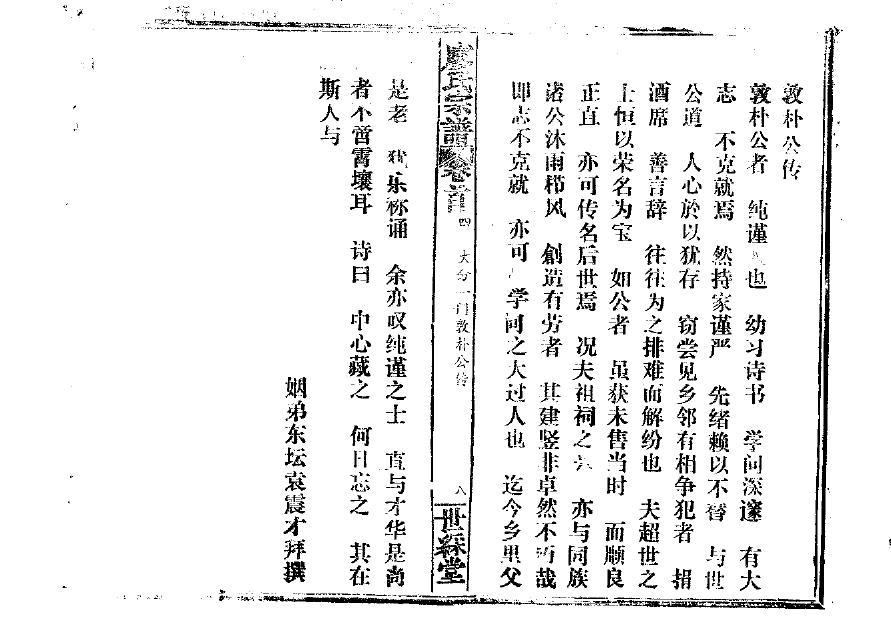 敦朴公传
敦朴公者 纯谨 也 幼习诗书 学问深邃 有大
志 不克就焉 然持家谨严 先绪赖以不替 与世
公道 人心於以犹存 窃尝见乡邻有相争犯者 捐
酒席 善言辞 往往为之排难而解纷也 夫超世之
士恒以荣名为宝 如公者 虽获未售当时 而顺良
正直 亦可传名后世焉 况夫祖祠之 亦与同族
诸公沐雨栉风 创造有劳者 其建竖非卓然不朽哉
即志不克就 亦可 学问之大过人也 迄今乡里父
廖氏宗谱 卷首 四 大分一门敦朴公传 八 世綵堂
是老 犹乐称诵 余亦叹纯谨之士 直与才华是尚
者不啻霄壤耳 诗曰 中心藏之 何日忘之 其在
斯人与
姻弟东坛袁震才拜撰